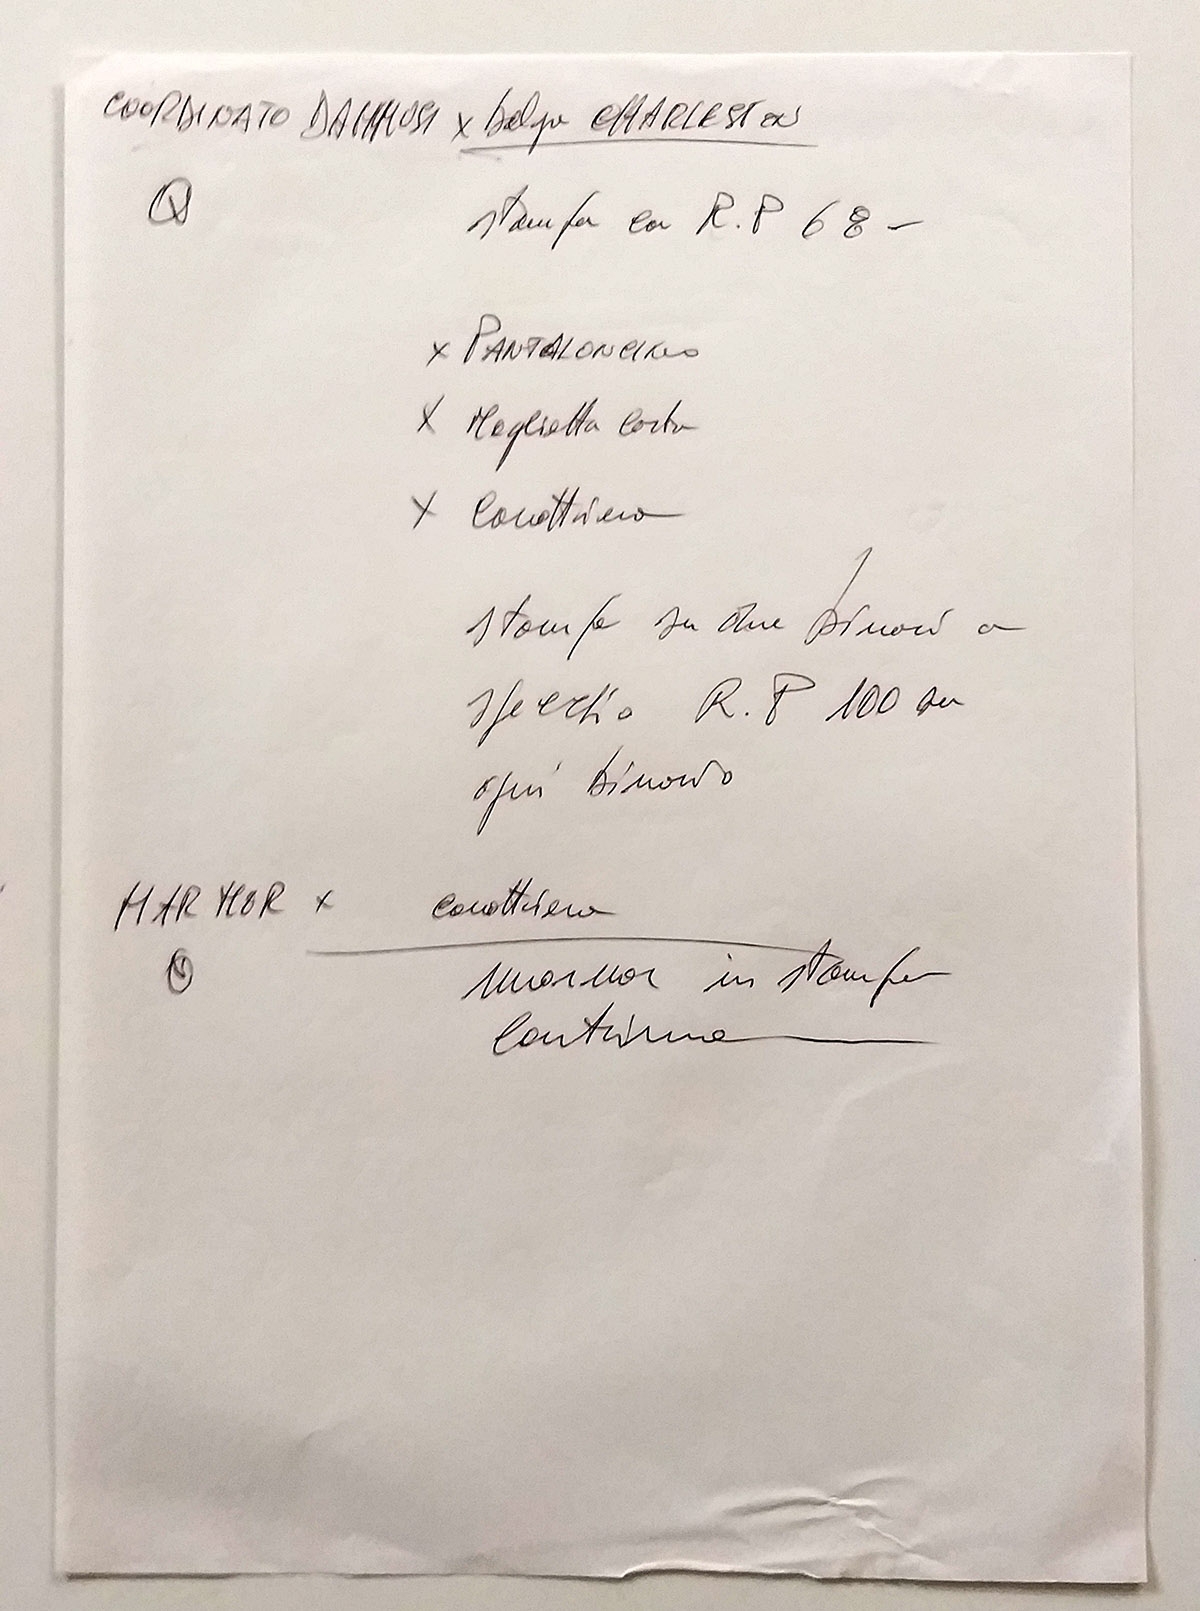 COORDINATO DAMMUSI x Belga CHARLESTON
stampa con R.P 68 -
x PANTALONCINO
x Maglietta corta
x Canottiera
stampa su due binari a
specchio R.P 100 su
ogni binario
MARMOR x canottiera
marmor in stampa
continua